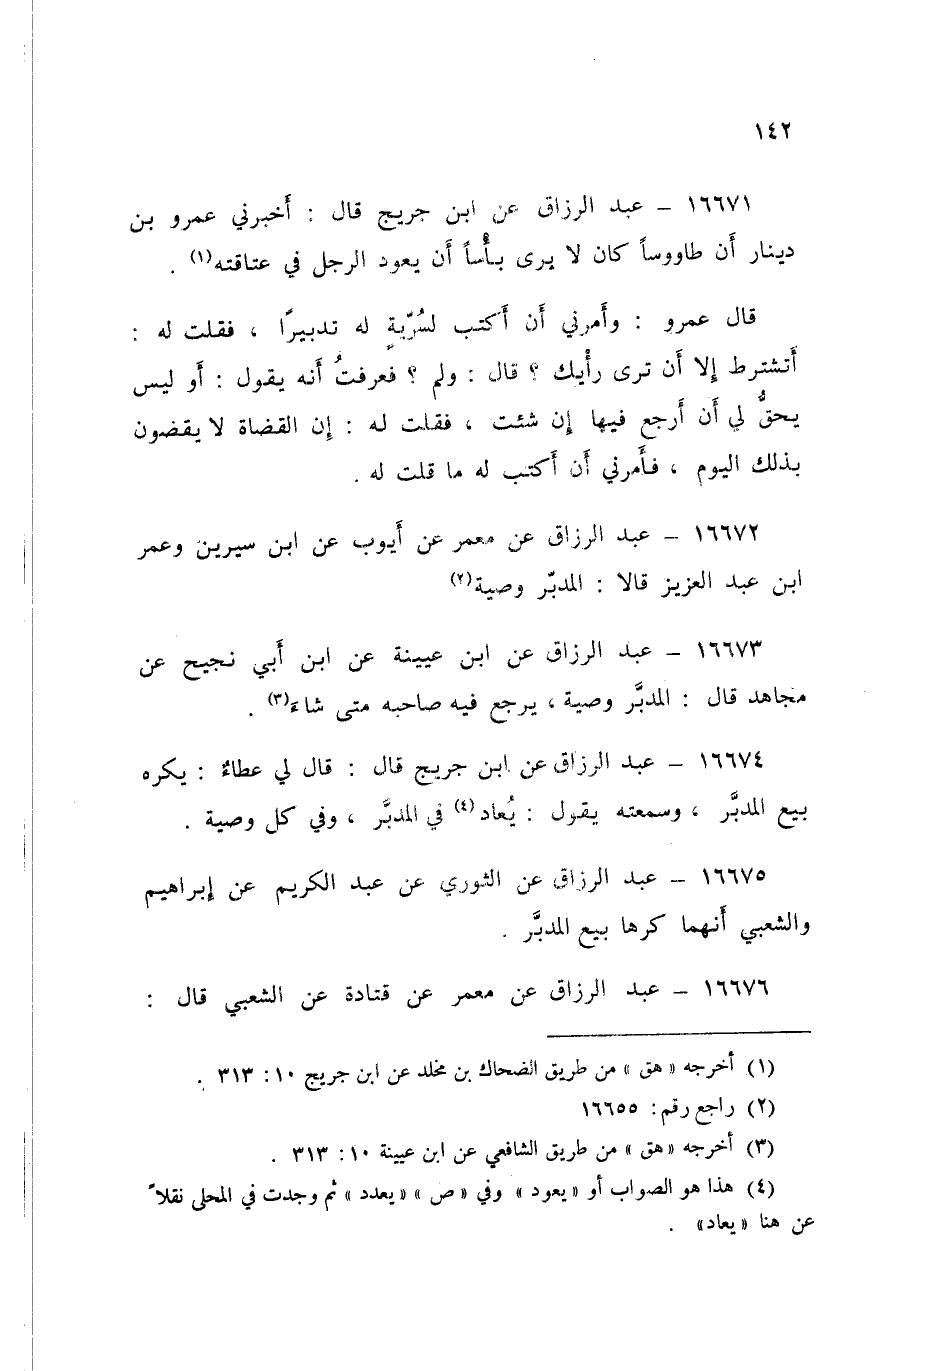 ١٤٢
١٦٦٧١ – عبد الرزاق عن ابن جريج قال : أخبرني عمرو بن
دينار أن طاووساً كان لا يرى بأْساً أن يعود الرجل في عتاقته(١) .
قال عمرو : وأمرني أن أكتب لسُرّيةٍ له تدبيرًا ، فقلت له :
أتشترط إلا أن ترى رأْيك ؟ قال : ولم ؟ فعرفتُ أنه يقول : أو ليس
يحقُّ لي أن أرجع فيها إن شئت ، فقلت له : إن القضاة لا يقضون
بذلك اليوم ، فأمرني أن أكتب له ما قلت له .
١٦٦٧٢ – عبد الرزاق عن معمر عن أيوب عن ابن سيرين وعمر
ابن عبد العزيز قالا : المدبّر وصية(٢)
١٦٦٧٣ – عبد الرزاق عن ابن عيينة عن ابن أبي نجيح عن
مجاهد قال : المدبَّر وصية ، يرجع فيه صاحبه متى شاء(٣) .
١٦٦٧٤ – عبد الرزاق عن ابن جريج قال : قال لي عطاءٌ : يكره
بيع المدبَّر ، وسمعته يقول : يُعاد(٤) في المدبَّر ، وفي كل وصية .
١٦٦٧٥ – عبد الرزاق عن الثوري عن عبد الكريم عن إبراهيم
والشعبي أنهما كرها بيع المدبَّر .
١٦٦٧٦ – عبد الرزاق عن معمر عن قتادة عن الشعبي قال :
(١) أخرجه «هق» من طريق الضحاك بن مخلد عن ابن جريج ١٠ : ٣١٣ .
(٢) راجع رقم : ١٦٦٥٥
(٣) أخرجه «هق» من طريق الشافعي عن ابن عيينة ١٠ : ٣١٣ .
(٤) هذا هو الصواب أو «يعود» وفي «ص» «يعدد» ثم وجدت في المحلى نقلاً
عن هنا «يعاد» .